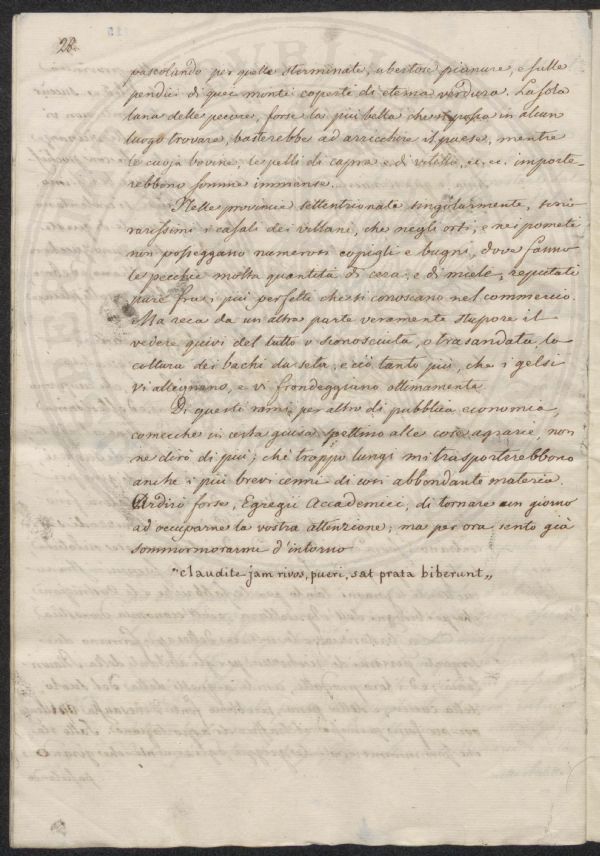 28.
pascolando per quelle sterminate, ubertose pianure, e sulle
pendici di quei monti coperti di eterna verdura. La sola
lana delle pecore, forse la più bella che si possa in alcun
luogo trovare, basterebbe ad arricchire il paese, mentre
le cuoja bovine, le pelli di capra e di vitello, ec. ec. importe-
rebbono somme immense.
Nelle provincie settentrionali singolarmente, sono
rarissimi i casali dei villani, che negli orti, e nei pometi
non posseggano numerosi copigli e bugni, dove fanno
le pecchie molta quantità di cera, e di miele, reputati
pure fra i più perfetti che si conoscano nel commercio.
Ma reca da un'altra parte veramente stupore il
vedere quivi del tutto o sconosciuta, o trasandata la
coltura dei bachi da seta; e ciò tanto più, che i gelsi
vi allegnano, e vi frondeggiano ottimamente.
Di questi rami, per altro di pubblica economia,
comecchè in certa guisa spettino alle cose agrarie, non
ne dirò di più; chè troppo lungi mi trasporterebbono
anche i più brevi cenni di così abbondante materia.
Ardirò forse, Egregii Accademici, di tornare un giorno
ad occuparne la vostra attenzione; ma per ora sento già
sommormorarmi d'intorno
"claudite jam rivos, pueri, sat prata biberunt„